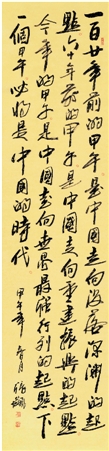 一百廿年前的甲午是中國走向没落深渊的起
點六十年前的甲午是中國走向重建振興的起點
今年的甲午是中國走向世界最強行列的起點下
一個甲午必將是中國的時代
甲午年春月